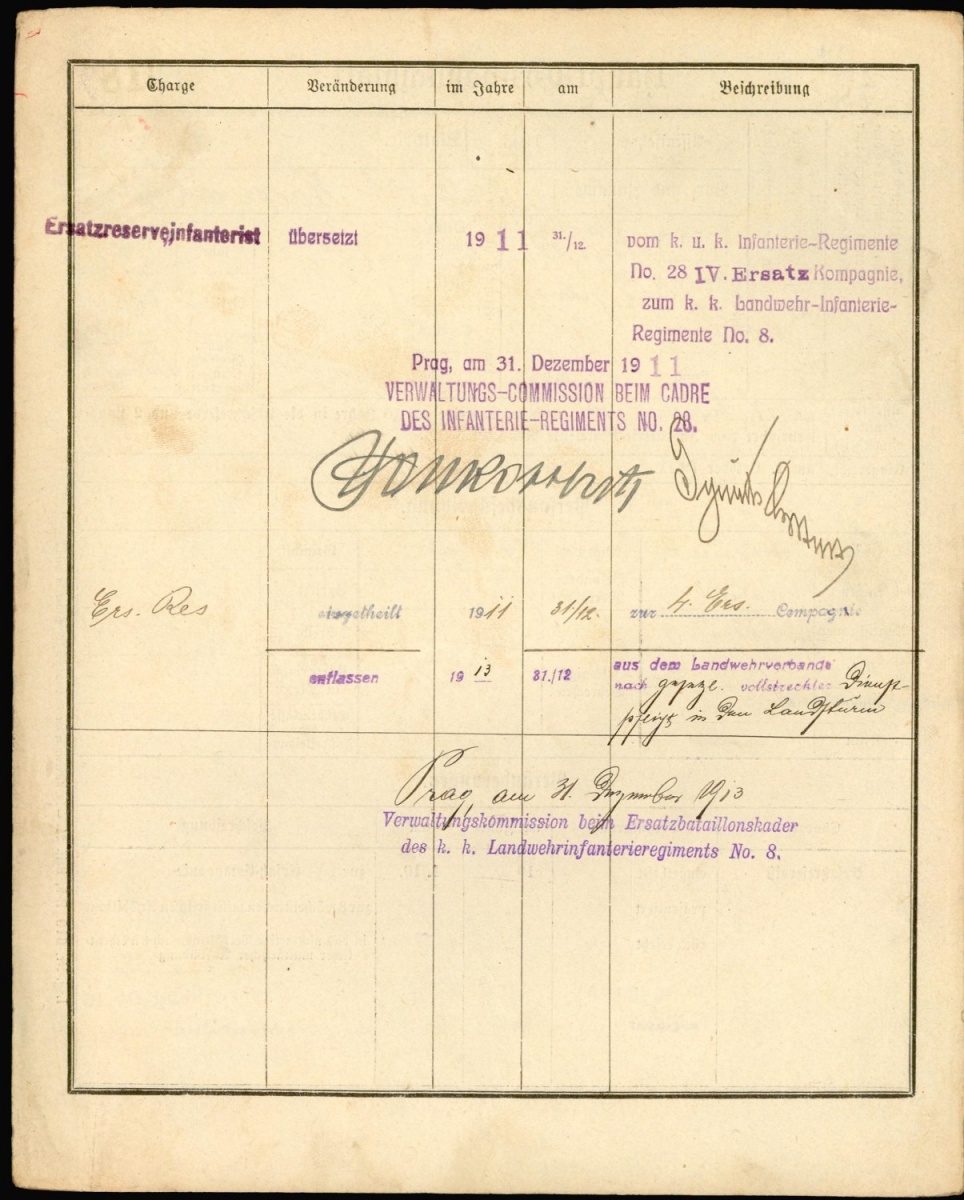 Charge Veränderung im Jahre am Beschreibung
Ersatzreserveinfanterist übersetzt 1911 31./12. vom k. u. k. Infanterie-Regimente
No. 28 IV. Ersatz Kompagnie,
zum k. k. Landwehr-Infanterie-
Regimente No. 8.
Prag, am 31. Dezember 1911
VERWALTUNGS-COMMISSION BEIM CADRE
DES INFANTERIE-REGIMENTS NO. 28.
Ers. Res eingetheilt 1911 31/12. zur 4. Ers. Compagnie
entlassen 1913 31./12 aus dem Landwehrverbande
nach gesezl. vollstreckter Dienst-
pflicht in den Landsturm
Prag, am 31. Dezember 1913
Verwaltungskommission beim Ersatzbataillonskader
des k. k. Landwehrinfanterieregiments No. 8.